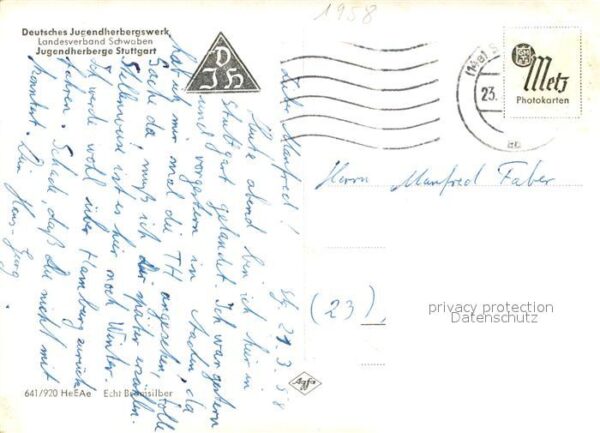 1958
Deutsches Jugendherbergswerk,
Landesverband Schwaben
Jugendherberge Stuttgart
DJH
23.
Metz
Photokarten
Stg, 21.3.58
Lieber Manfred!
Heute abend bin ich hier in
Stuttgart gelandet. Ich war gestern
und vorgestern in Aachen, da
hab ich mir mal die TH angesehen, tolle
Sache da, muß ich dir später erzählen.
Stellenweise ist es hier noch Winter.
Ich werde wohl über Hamburg zurück
fahren. Schade, daß Du nicht mit
konntest. Dein Hans-Jürg.
Herrn Manfred Faber
(23)
privacy protection
Datenschutz
Agfa
641/920 HeEAe Echt Bromsilber